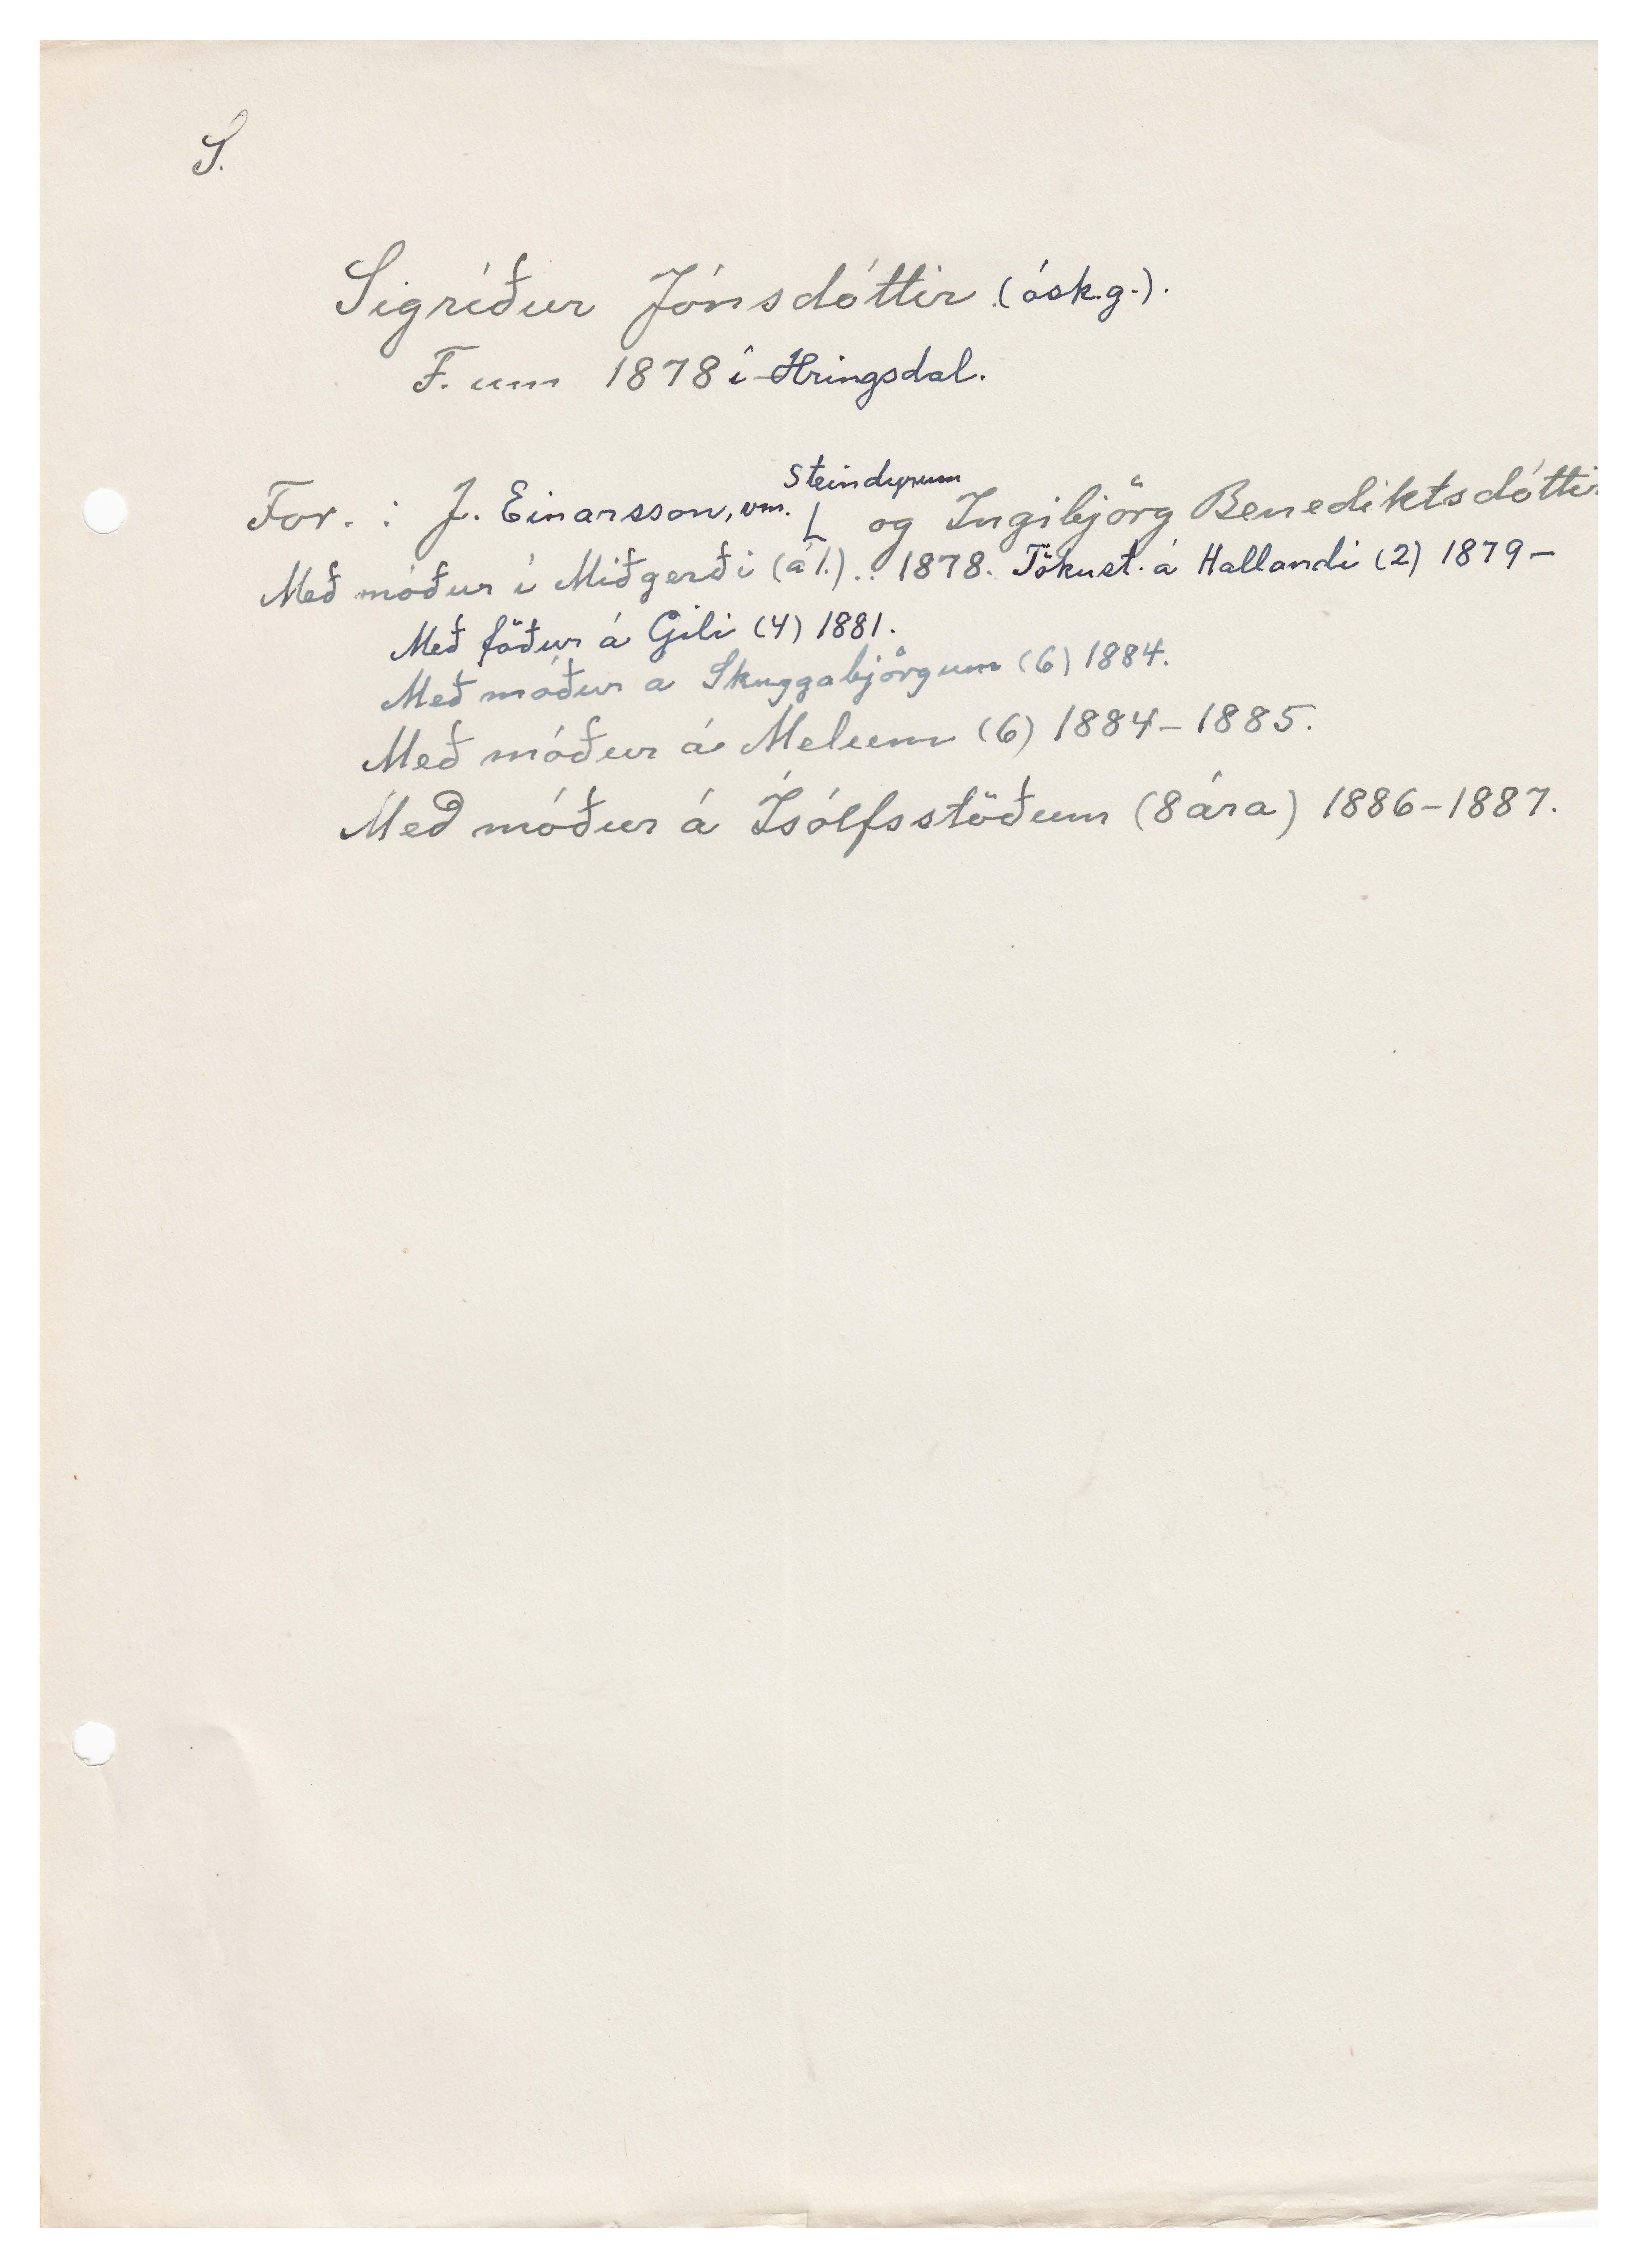 S.
Sigríður Jónsdóttir (ósk.g.).
F. um 1878 í Hringsdal.
Steindyrum
For. : J. Einarsson, vm. og Ingibjörg Benediktsdóttir
Með móður í Miðgerði (á 1.).. 1878. Tökust. á Hallandi (2) 1879-
Með föður á Gili (4) 1881.
Með móður a Skuggabjörgum (6) 1884.
Með móður á Melum (6) 1884-1885.
Með móður á Ísólfsstöðum (8 ára) 1886-1887.